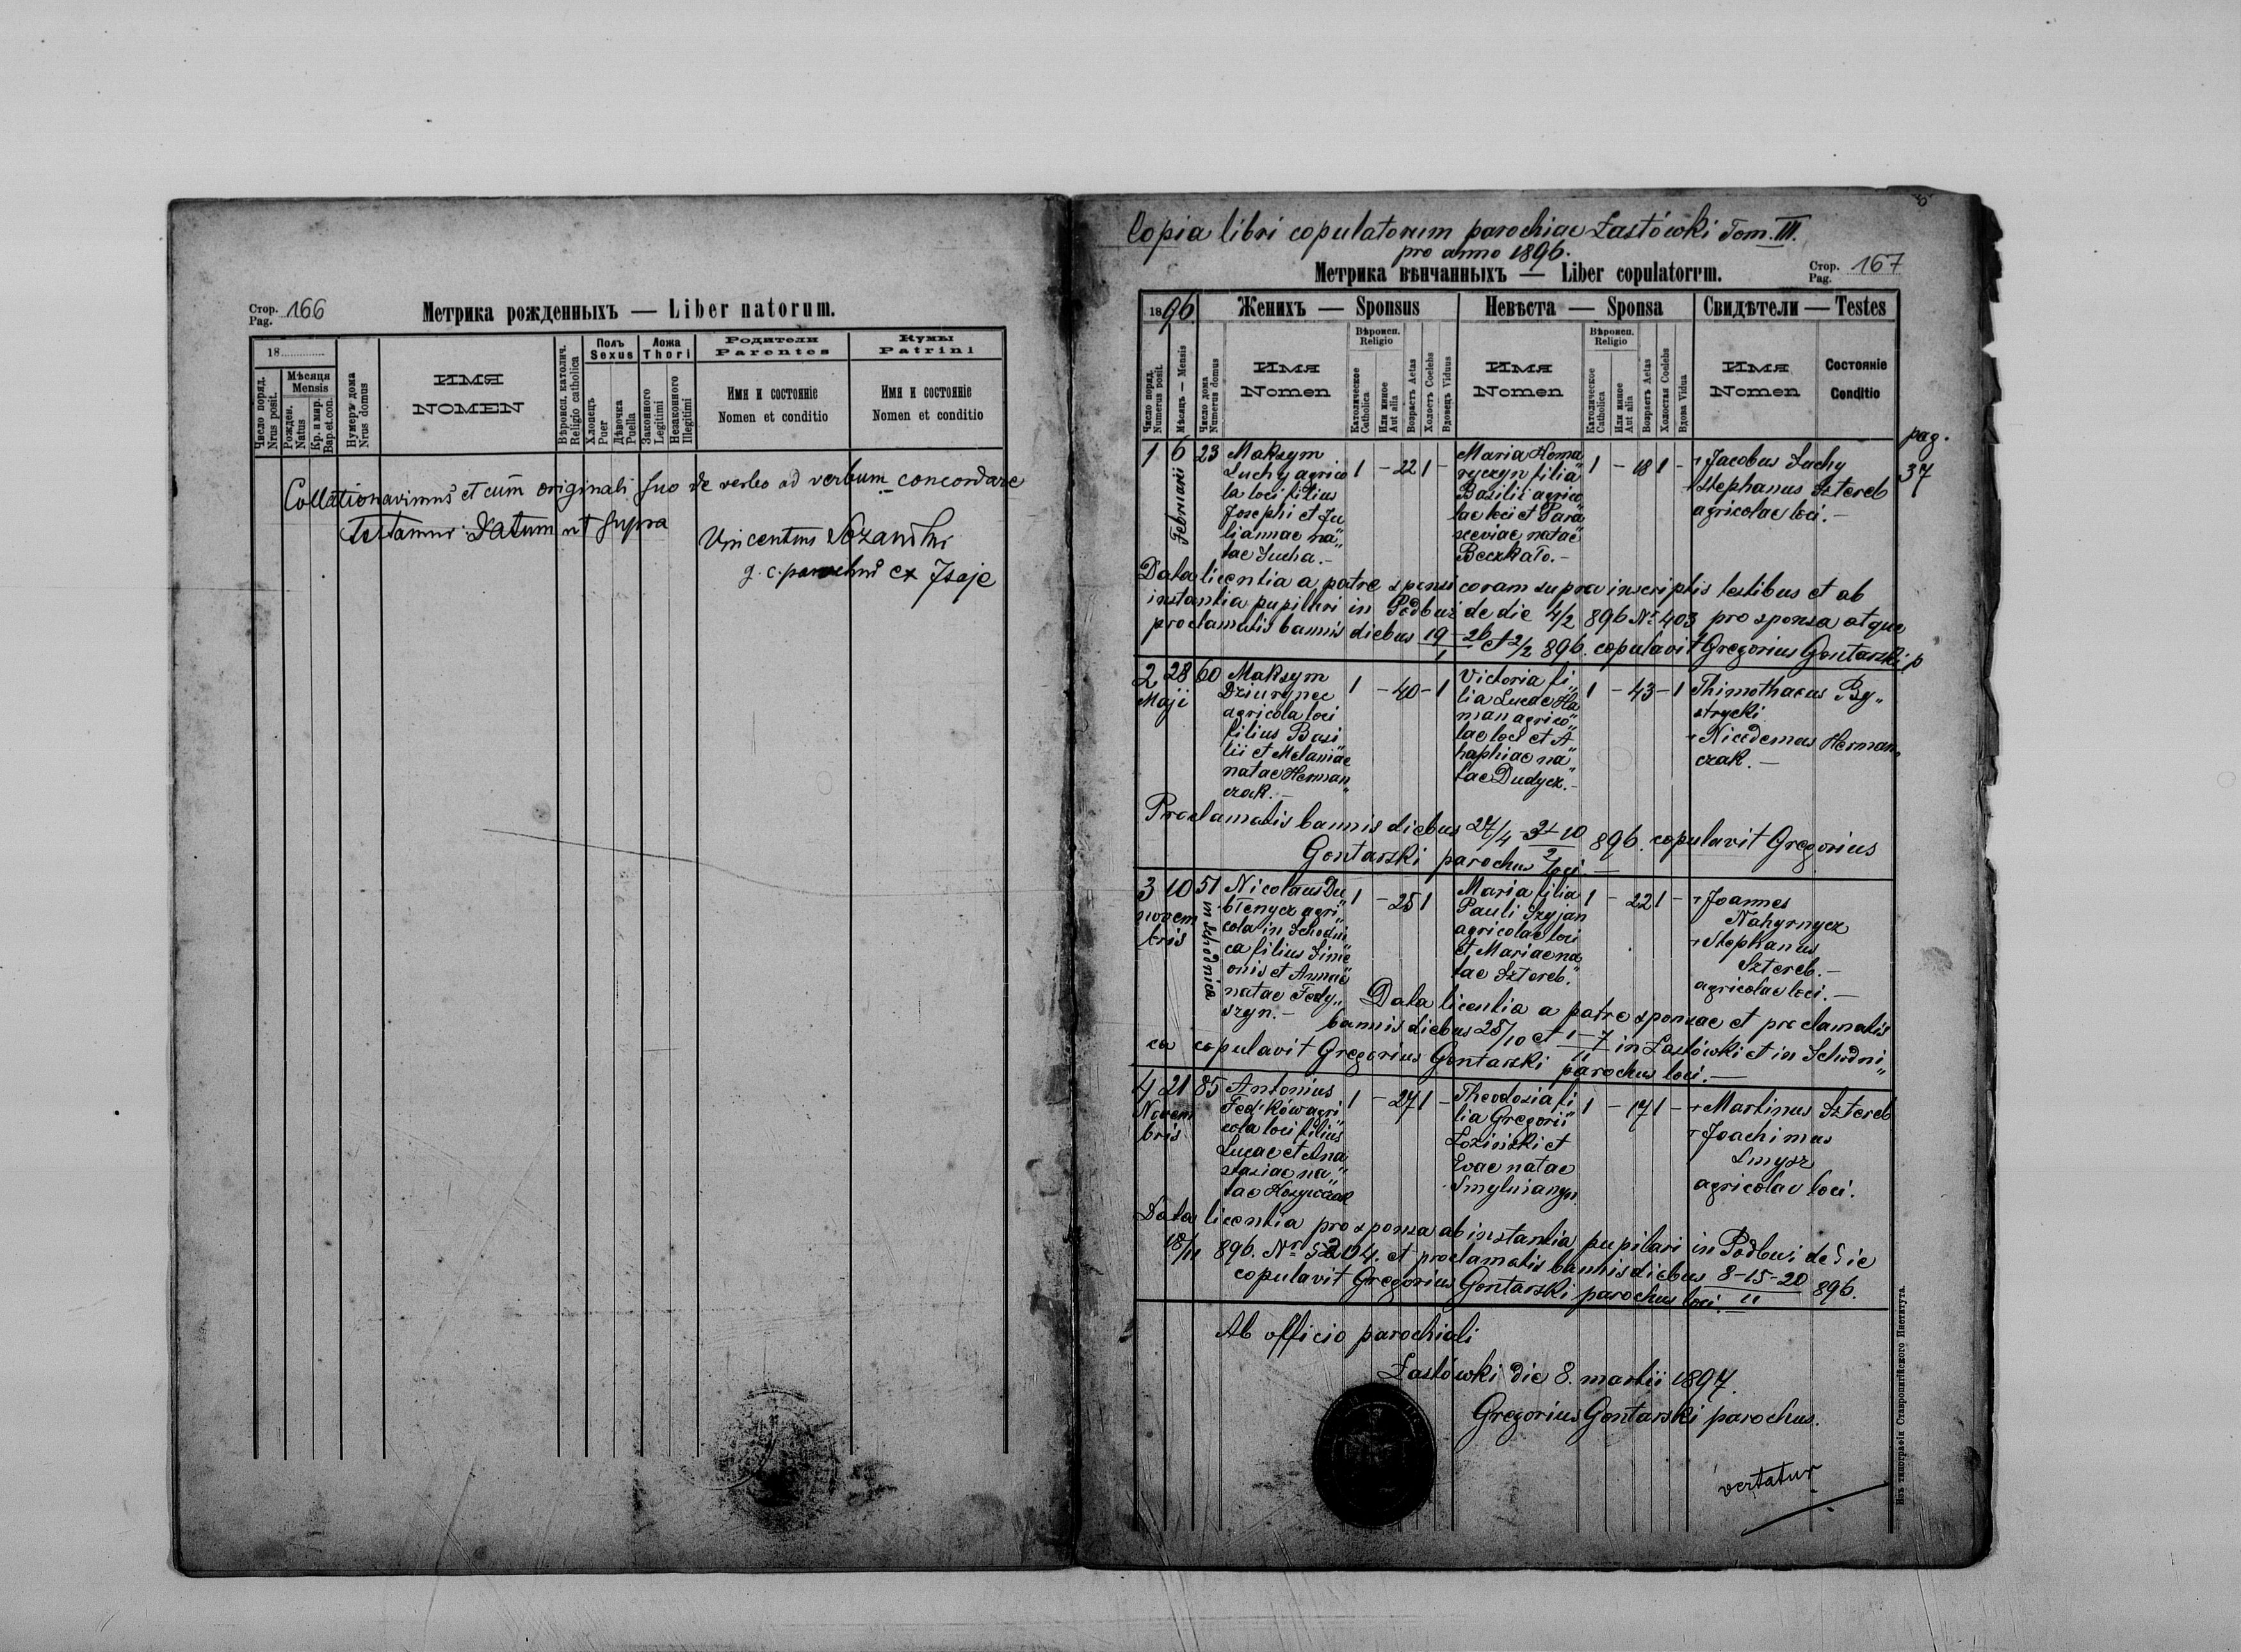 Стор. Pag. 166
Метрика рожденныхъ — Liber natorum.
18
Число поряд. Nrus posit.
Мѣсяця Mensis
Рожден. Natus
Кр. и мир. Bap.et.con.
Нумеръ дома Nrus domus
ИМЯ
NOMEN
Вѣроисп. католич. Religio catholica
Полъ Sexus
Хлопецъ Puer
Дѣвочка Puella
Ложа Thori
Законного Legitimi
Незаконного Illegitimi
Родители
Parentes
Имя и состояніе
Nomen et conditio
Кумы
Patrini
Имя и состояніе
Nomen et conditio
Collationavimus et cum originali suo de verbo ad verbum concordare
testamur. Datum ut supra
Vincentius
g. c. parochus ex Isaje
Copia libri copulatorum parochiae Zastówki Tom. III.
pro anno 1896.
Метрика вѣнчанныхъ — Liber copulatorum.
Стор. Pag. 167
1896
Женихъ — Sponsus
Невѣста — Sponsa
Свидѣтели — Testes
Число поряд. Numerus posit.
Мѣсяць — Mensis
Число дома Numerus domus
Имя
Nomen
Вѣроисп. Religio
Католическое Catholica
Или иное Aut alia
Возрастъ Aetas
Холостъ Coelebs
Вдовецъ Viduus
Имя
Nomen
Вѣроисп. Religio
Католическое Catholica
Или иное Aut alia
Возрастъ Aetas
Холостая Coelebs
Вдова Vidua
Имя
Nomen
Состояніе
Conditio
pag.
37
1 6 Februarii 23
Maksym
Suchy agrico
la loci filius
Josephi et Ju
liannae na„
tae Sucha.-
1 - 22 1 -
Maria Homa
ryczyn filia
Basilii agrico
lae loci et Para
sceviae natae
Beczkało.-
1 - 18 1 -
Jacobus Suchy
Stephanus Sztereb
agricolae loci.-
Data licentia a patre sponsi coram supra inscriptis testibus et ab
instantia pupilari in Podbuż de die 4/2 896 No 403 pro sponsa atque
proclamatis bannis diebus 19-26/1 et 2/2 896. copulavit Gregorius Gontarski p
2 28 Maji 60
Maksym
Dziurynec
agricola loci
filius Basi
lii et Melaniae
natae Herman„
czak.-
1 - 40 - 1
Victoria fi„
lia Lucae Ha
man agrico„
lae loci et A
haphiae na„
tae Dudycz.-
1 - 43 - 1
Thimothaeus By„
strycki
Nicodemus Herman„
czak.-
Proclamatis bannis diebus 27/4 - 10 896. copulavit Gregorius
Gontarski parochus loci.-
3 10 novem bris 51 in Schodnica
Nicolaus Du
błenycz agri„
cola in Schodni
ca filius Sime
onis et Annae
natae Fedy„
szyn.-
1 - 25 1
Maria filia
Pauli Szyjan
agricolae loci
et Mariae na
tae Sztereb.
1 - 22 1 -
Joannes
Nahyrnycz
Stephanus
Sztereb.-
agricolae loci.-
Data licentia a patre sponsae et proclamatis
bannis diebus 25/10 et 1-7/11 in Zastówki et in Schodni„
ca copulavit Gregorius Gontarski parochus loci.-
4 21 Novem bris 85
Antonius
Fedików agri„
cola loci filius
Lucae et Ana
stasiae na„
tae
1 - 27 1 -
Theodosia fi
lia Gregorii
Łoziński et
Evae natae
1 - 17 1 -
Martinus Sztereb
Joachimus
Smysz
agricolae loci.
Data licentia pro sponsa ab instantia pupilari in Podbuż de die
18/11 896. Nr et proclamatis bannis diebus 8-15-20/11 896.
copulavit Gregorius Gontarski parochus loci.
Ab officio parochiali
Zastówki die 8. martii 1897.
Gregorius Gontarski parochus.
vertatur
Изъ типографіи Ставропигійского Института.